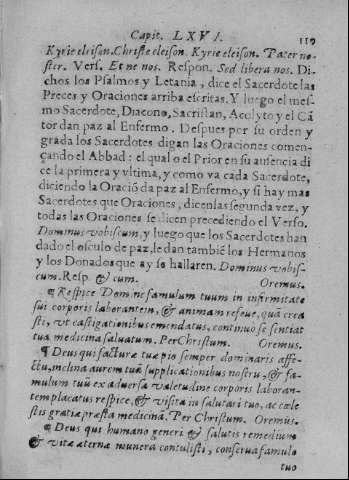 Capit. LXVI. 119
Kyrie eleison. Christe eleison. Kyrie eleison. Pater no-
ster. Vers. Et ne nos. Respon. Sed libera nos. Di-
chos los Psalmos y Letania, dice el Sacerdote las
Preces y Oraciones arriba escritas. Y luego el mes-
mo Sacerdote, Diacono, Sacristan, Acolyto y el Cã
tor dan paz al Enfermo. Despues por su orden y
grada los Sacerdotes digan las Oraciones comen-
çando el Abbad: el qual o el Prior en su ausencia di
ce la primera y vltima, y como va cada Sacerdote,
diciendo la Oració da paz al Enfermo, y si hay mas
Sacerdotes que Oraciones, dicenlas segunda vez, y
todas las Oraciones se dicen precediendo el Verso.
Dominus vobiscum, y luego que los Sacerdotes han
dado el osculo de paz, le dan tambié los Hermanos
y los Donados que ay se hallaren. Dominus vobis-
cum. Resp. & cum. Oremus.
¶ Respice Domine famulum tuum in infirmitate
sui corporis laborantem, & animam refoue, quã crea
sti, vt castigationibus emendatus, continuo se sentiat
tua medicina saluatum. Per Christum. Oremus.
¶ Deus qui facturæ tuæ pio semper dominaris affe-
ctu, inclina aurem tuã supplicationibus nostris, & fa-
mulum tuũ ex aduersa valetudine corporis laboran-
tem placatus respice, & visita in salutari tuo, ac cœle
stis gratiæ præsta medicinã. Per Christum. Oremus.
¶ Deus qui humano generi & salutis remedium
& vitæ æternæ munera contulisti, conserua famulo
tuo